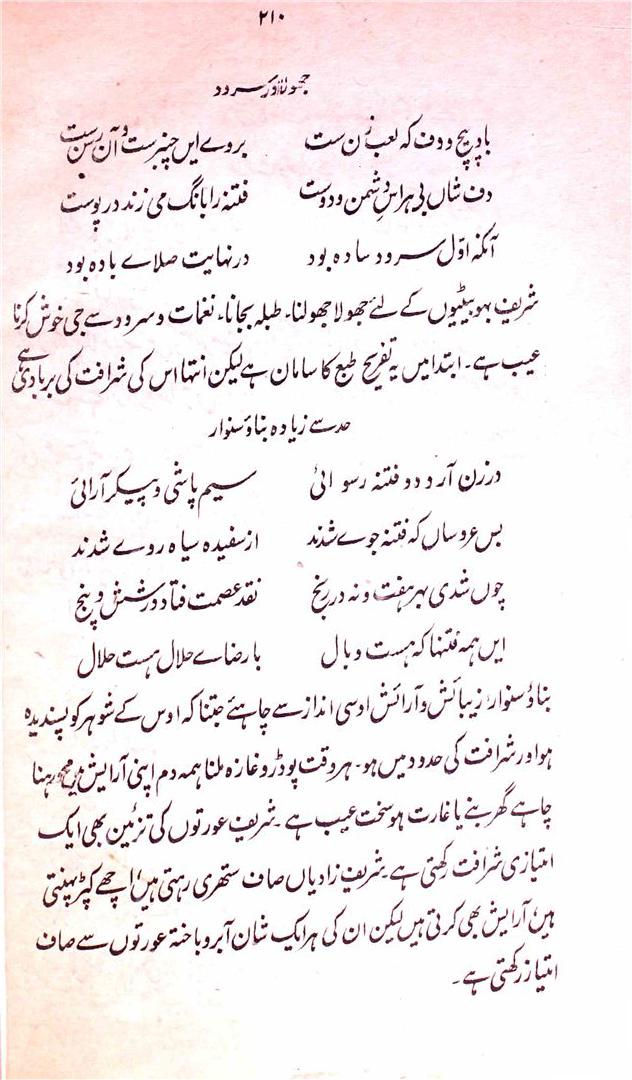 ۲۱۰
جھولا اور سرود
باد پیچ و دف کہ لعب زن ست بروے ایں چنبرست و آن رسن ست
دف شاں بی ہراس دشمن و دوست فتنہ را بانگ می زند در پوست
آنکہ اوّل سرود سادہ بود در نہایت صلاے بادہ بود
شریف بہو بیٹیوں کے لئے جھولا جھولنا۔ طبلہ بجانا۔ نغمات و سرود سے جی خوش کرنا
عیب ہے۔ ابتدا میں یہ تفریح طبع کا سامان ہے لیکن انتہا اس کی شرافت کی بربادی ہے
حد سے زیادہ بناؤ سنوار
در زن آرد دو فتنہ رسوائی سیم پاشی و پیکر آرائی
بس عروساں کہ فتنہ جوے شدند از سفیدہ سیاہ روے شدند
چوں شدی بہر ہفت و نہ در رنج نقد عصمت فتاد در شش و پنج
ایں ہمہ فتنہا کہ ہست وبال با رضاے حلال ہست حلال
بناؤ سنوار، زیبائش و آرائش اوسی انداز سے چاہئے جتنا کہ اوس کے شوہر کو پسندیدہ
ہو اور شرافت کی حدود میں ہو۔ ہر وقت پوڈر و غازہ ملنا ہمہ دم اپنی آرایش میں محو رہنا
چاہے گھر بنے یا غارت ہو سخت عیب ہے۔ شریف عورتوں کی تزئین بھی ایک
امتیازی شرافت رکھتی ہے۔ شریف زادیاں صاف ستھری رہتی ہیں، اچھے کپڑے پہنتی
ہیں، آرایش بھی کرتی ہیں لیکن ان کی ہر ایک شان آبرو باختہ عورتوں سے صاف
امتیاز رکھتی ہے۔